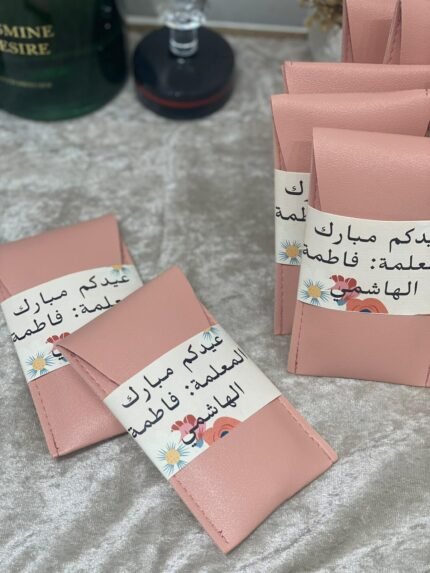 SMINE
ESIRE
عيدكم مبارك
المعلمة: فاطمة
الهاشمي
عيدكم مبارك
معلمة: فاطمة
عيدكم مبارك
المعلمة: فاطمة
الهاشمي